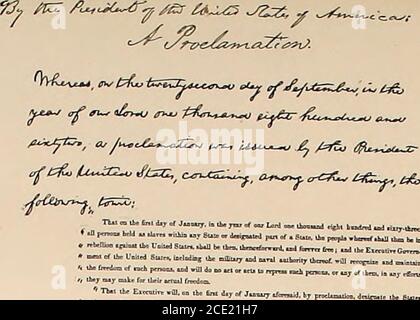 By the President of the United States of America:
A Proclamation.
Whereas, on the twentysecond day of September, in the
year of our Lord one thousand eight hundred and
sixty two, a proclamation was issued by the President
of the United States, containing, among other things, the
following, towit:
That on the first day of January, in the year of our Lord one thousand eight hundred and sixty-three
all persons held as slaves within any State or designated part of a State, the people whereof shall then be in
rebellion against the United States, shall be then, thenceforward, and forever free; and the Executive Govern-
ment of the United States, including the military and naval authority thereof, will recognize and maintain
the freedom of such persons, and will do no act or acts to repress such persons, or any of them, in any efforts
they may make for their actual freedom.
That the Executive will, on the first day of January aforesaid, by proclamation, designate the States
alamy
Image ID: 2CE21H7
www.alamy.com